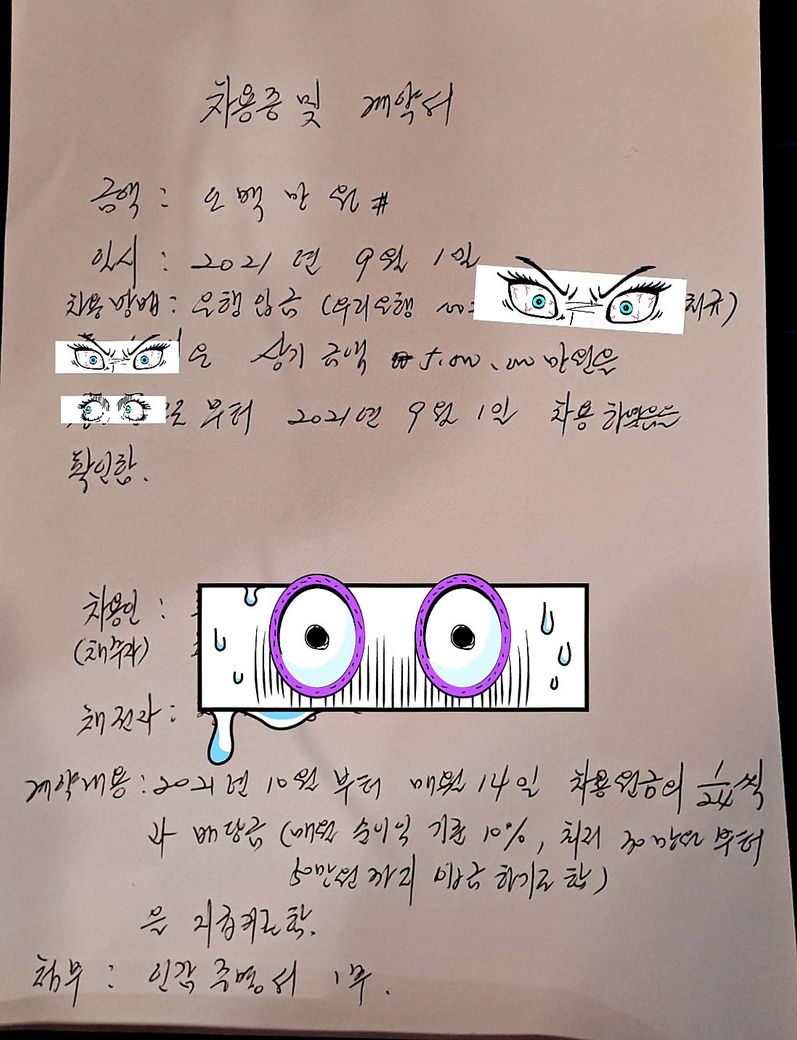 차용증 및 계약서
금액 : 오백만원#
일시 : 2021년 9월 1일
차용방법 : 은행입금 (우리은행
은 상기 금액 ₩5,000,000만원을
로부터 2021년 9월 1일 차용하였음을
확인함.
차용인 :
(채무자)
채권자 :
계약내용 : 2021년 10월부터 매월 14일 차용원금의 1/24씩
과 배당금 (매월 순이익 기준 10%, 최저 30만원부터
50만원까지 입금하기로 함)
을 지급키로함.
첨부 : 인감증명서 1부.